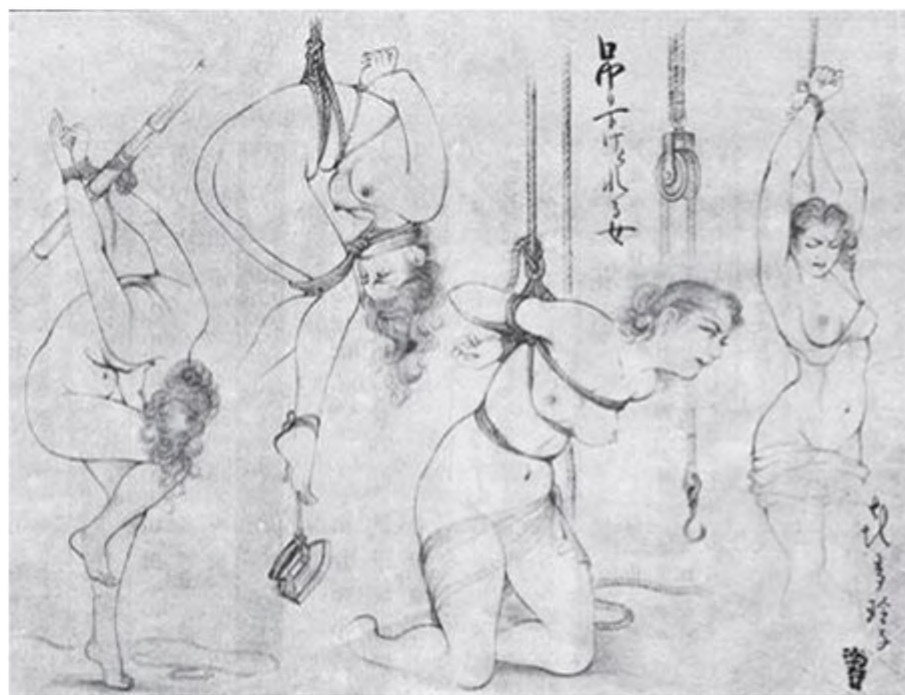 吊り下げられる女
喜多玲子